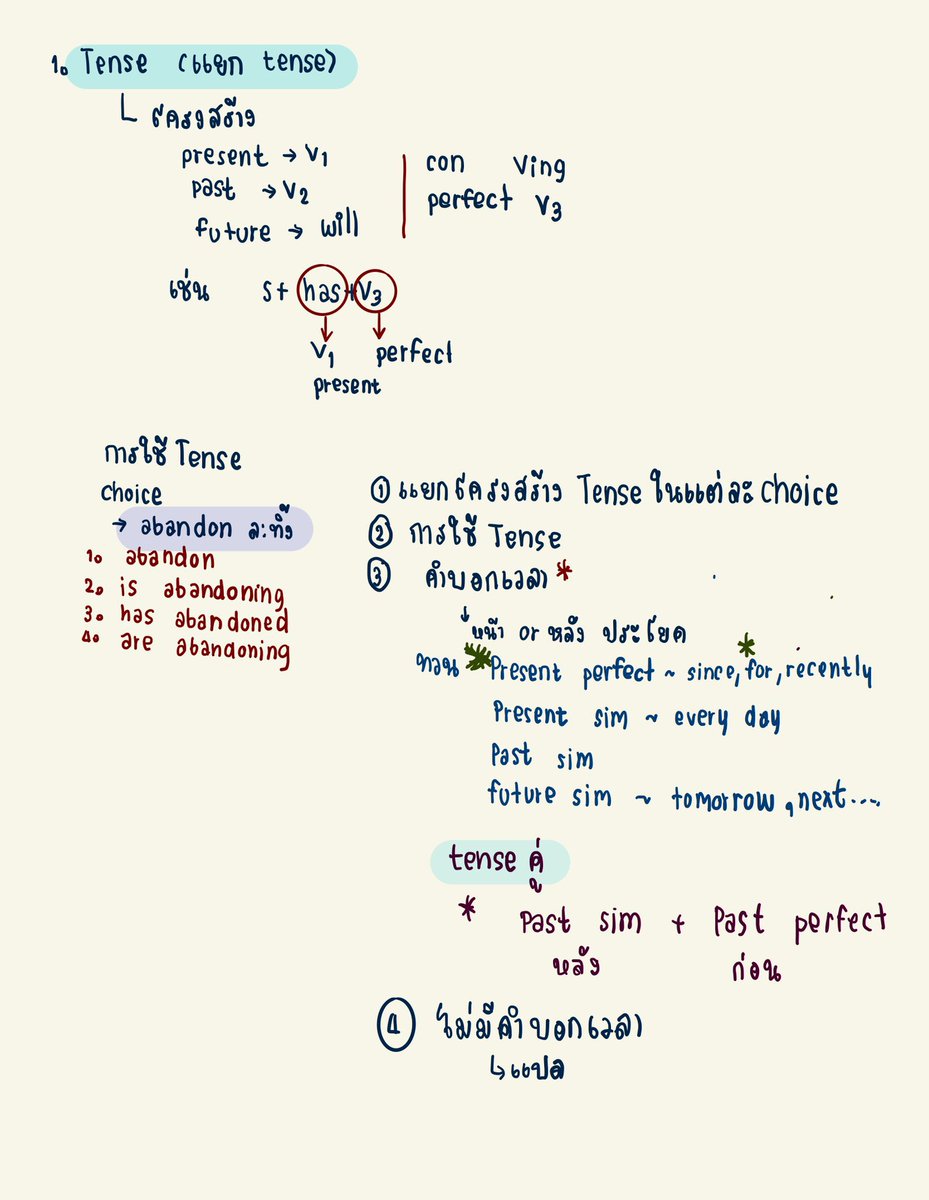 1. Tense (แยก tense)
โครงสร้าง
present → V1
past → V2
future → will
con Ving
perfect V3
เช่น S+ has+V3
V1 perfect
present
การใช้ Tense
choice
→ abandon ละทิ้ง
1. abandon
2. is abandoning
3. has abandoned
4. are abandoning
① แยกโครงสร้าง Tense ในแต่ละ choice
② การใช้ Tense
③ คำบอกเวลา *
↓ หน้า or หลัง ประโยค
* Present perfect ~ since, for, recently
Present sim ~ every day
Past sim
future sim ~ tomorrow, next....
tense คู่
* Past sim + Past perfect
หลัง ก่อน
④ ไม่มีคำบอกเวลา
↳ แปล